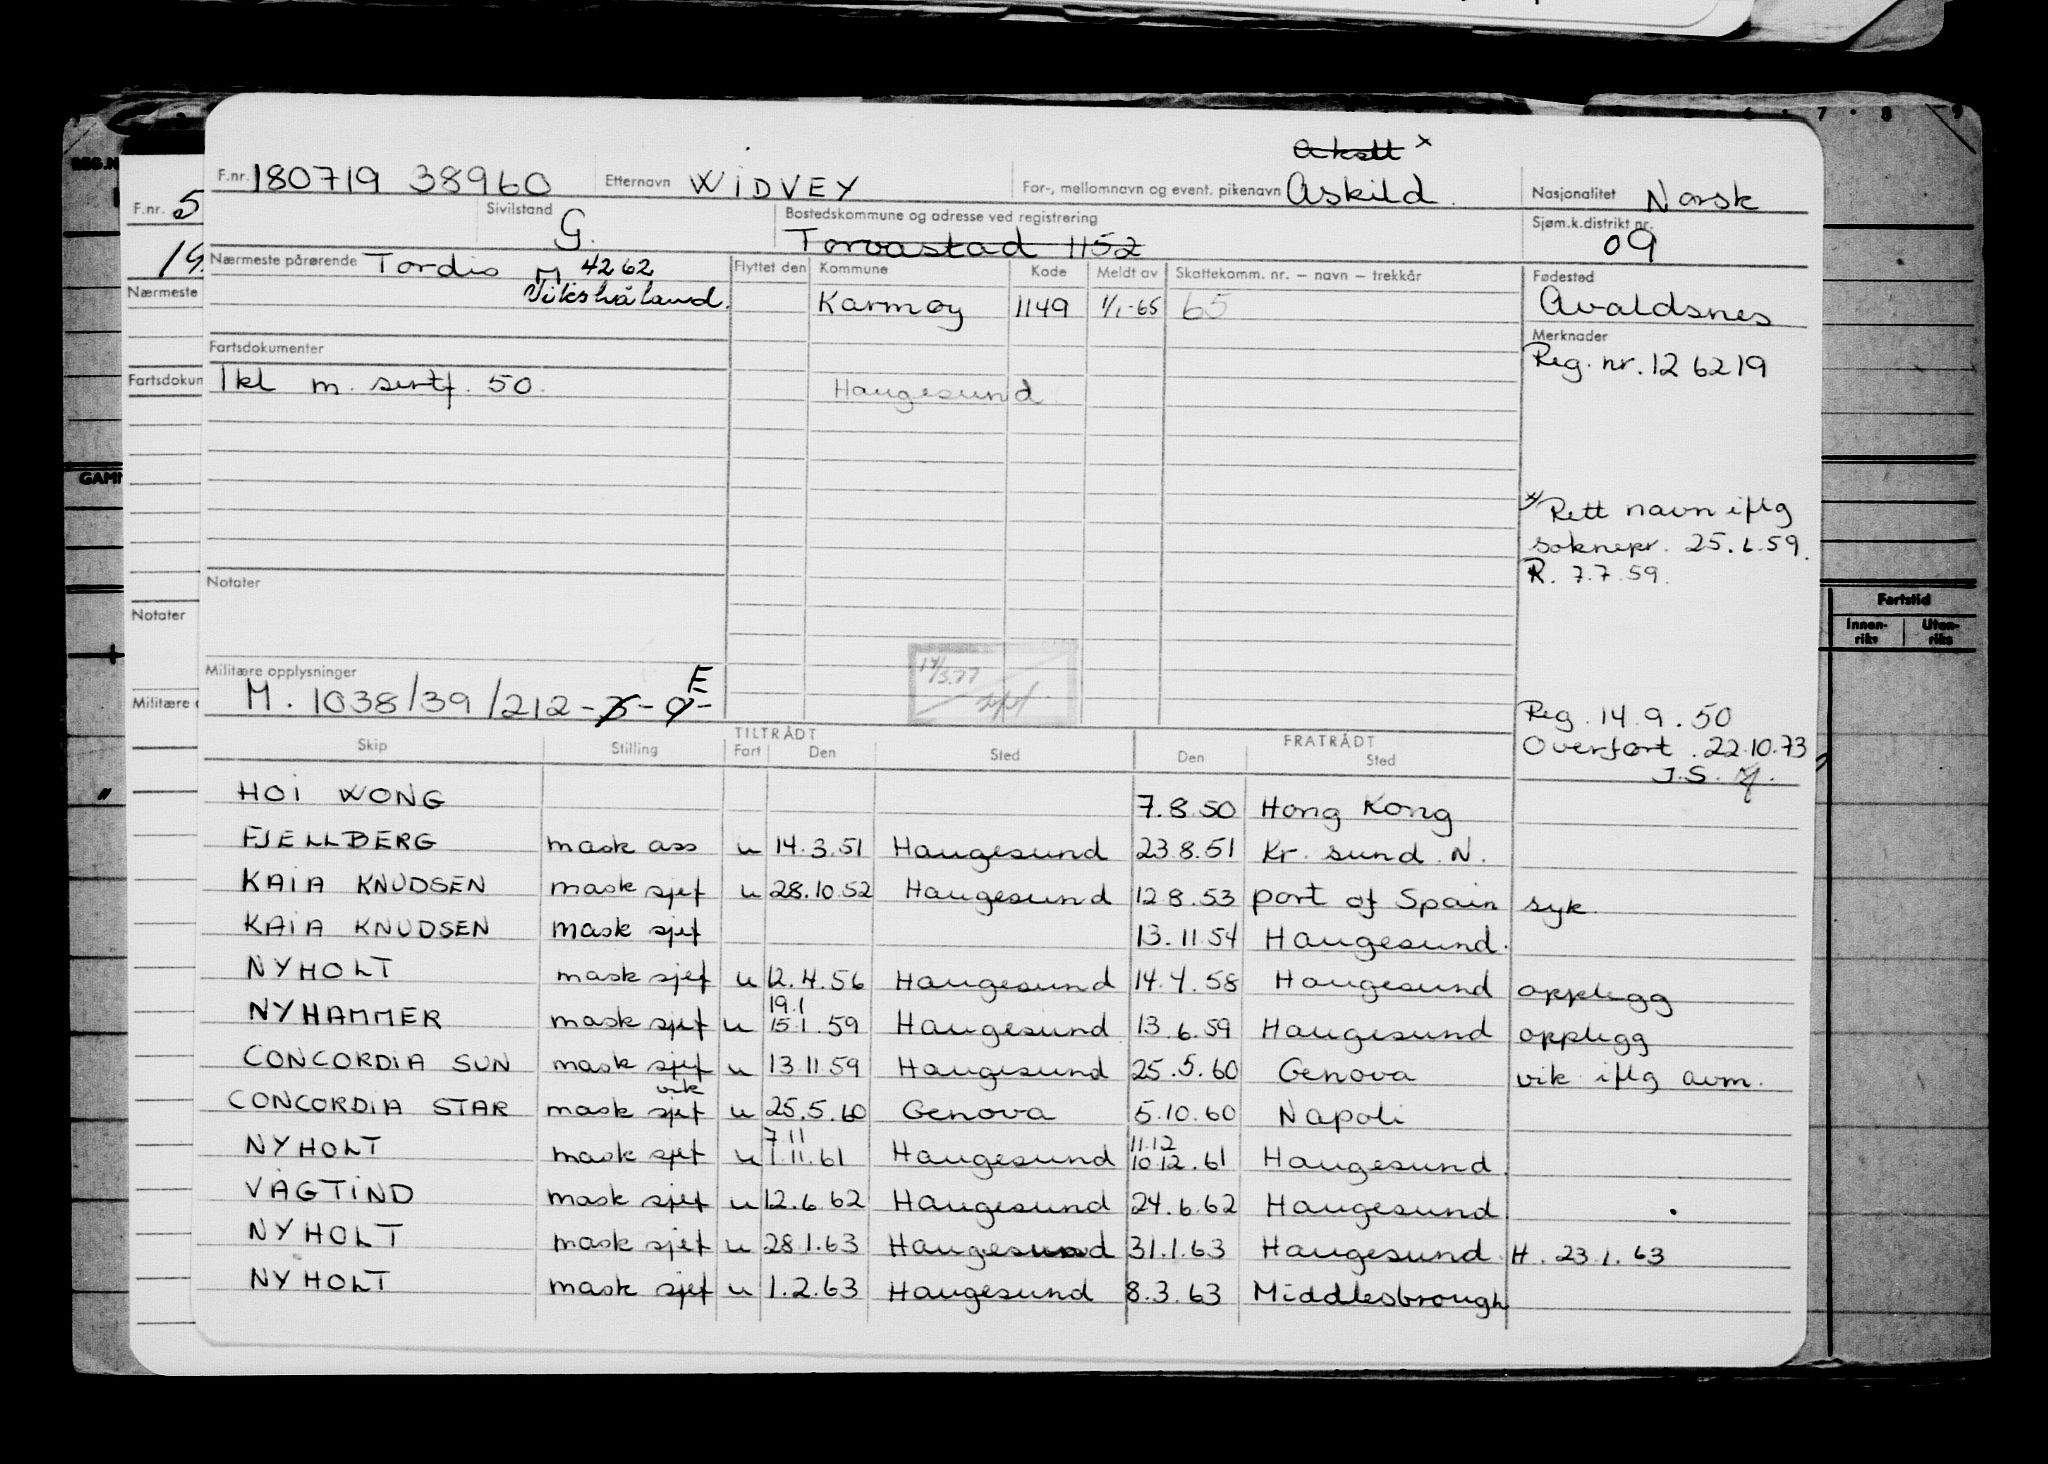 Akselt x
F.nr. 180719 38960 Etternavn WIDVEY For-, mellomnavn og event. pikenavn Askild. Nasjonalitet Norsk
Sivilstand G. Bostedskommune og adresse ved registrering Torvastad 1152 Sjøm.k.distrikt nr. 09
Nærmeste pårørende Tordis M 4262 Flyttet den Kommune Kode Meldt av Skattekomm. nr. – navn – trekkår Fødested
Vikshåland. Karmøy 1149 1/1-65 65 Avaldsnes
Fartsdokumenter Merknader
1kl m. sertf. 50. Haugesund Reg. nr. 126219
x/ Rett navn iflg
soknepr. 25.6.59.
R. 7.7.59.
Notater
Militære opplysninger
M. 1038/39/212-5-9- E
Reg. 14.9.50
Overført. 22.10.73
J.S.
TILTRÅDT FRATRÅDT
Skip Stilling Fart Den Sted Den Sted
HOI WONG 7.8.50 Hong Kong
FJELLBERG mask ass u 14.3.51 Haugesund 23.8.51 Kr. sund. N.
KAIA KNUDSEN mask sjef u 28.10.52 Haugesund 12.8.53 port of Spain syk
KAIA KNUDSEN mask sjef 13.11.54 Haugesund.
NYHOLT mask sjef u 12.4.56 Haugesund 14.4.58 Haugesund opplegg
19.1
NYHAMMER mask sjef u 15.1.59 Haugesund 13.6.59 Haugesund opplegg
CONCORDIA SUN mask sjef u 13.11.59 Haugesund 25.5.60 Genova vik iflg avm.
vik
CONCORDIA STAR mask sjef u 25.5.60 Genova 5.10.60 Napoli
7.11 11.12
NYHOLT mask sjef u 1.11.61 Haugesund 10.12.61 Haugesund.
VÅGTIND mask sjef u 12.6.62 Haugesund 24.6.62 Haugesund
NYHOLT mask sjef u 28.1.63 Haugesund 31.1.63 Haugesund H. 23.1.63
NYHOLT mask sjef u 1.2.63 Haugesund 8.3.63 Middlesbrough
F.nr. 5
19
Nærmeste
Fartsdokun
Notater
Militære
GAMM
Fartstid
Innen-riks Uten-riks
7 8 9